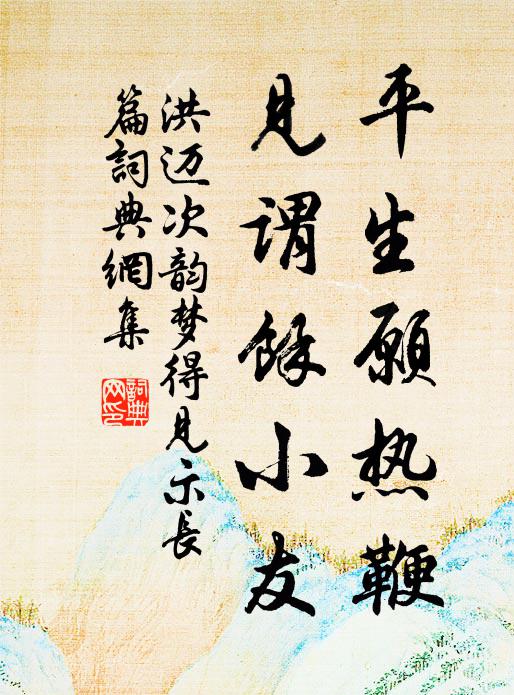 平生愿热鞭
见谓馀小友
洪迈次韵梦得见示长
篇词典網集
詞典
网印